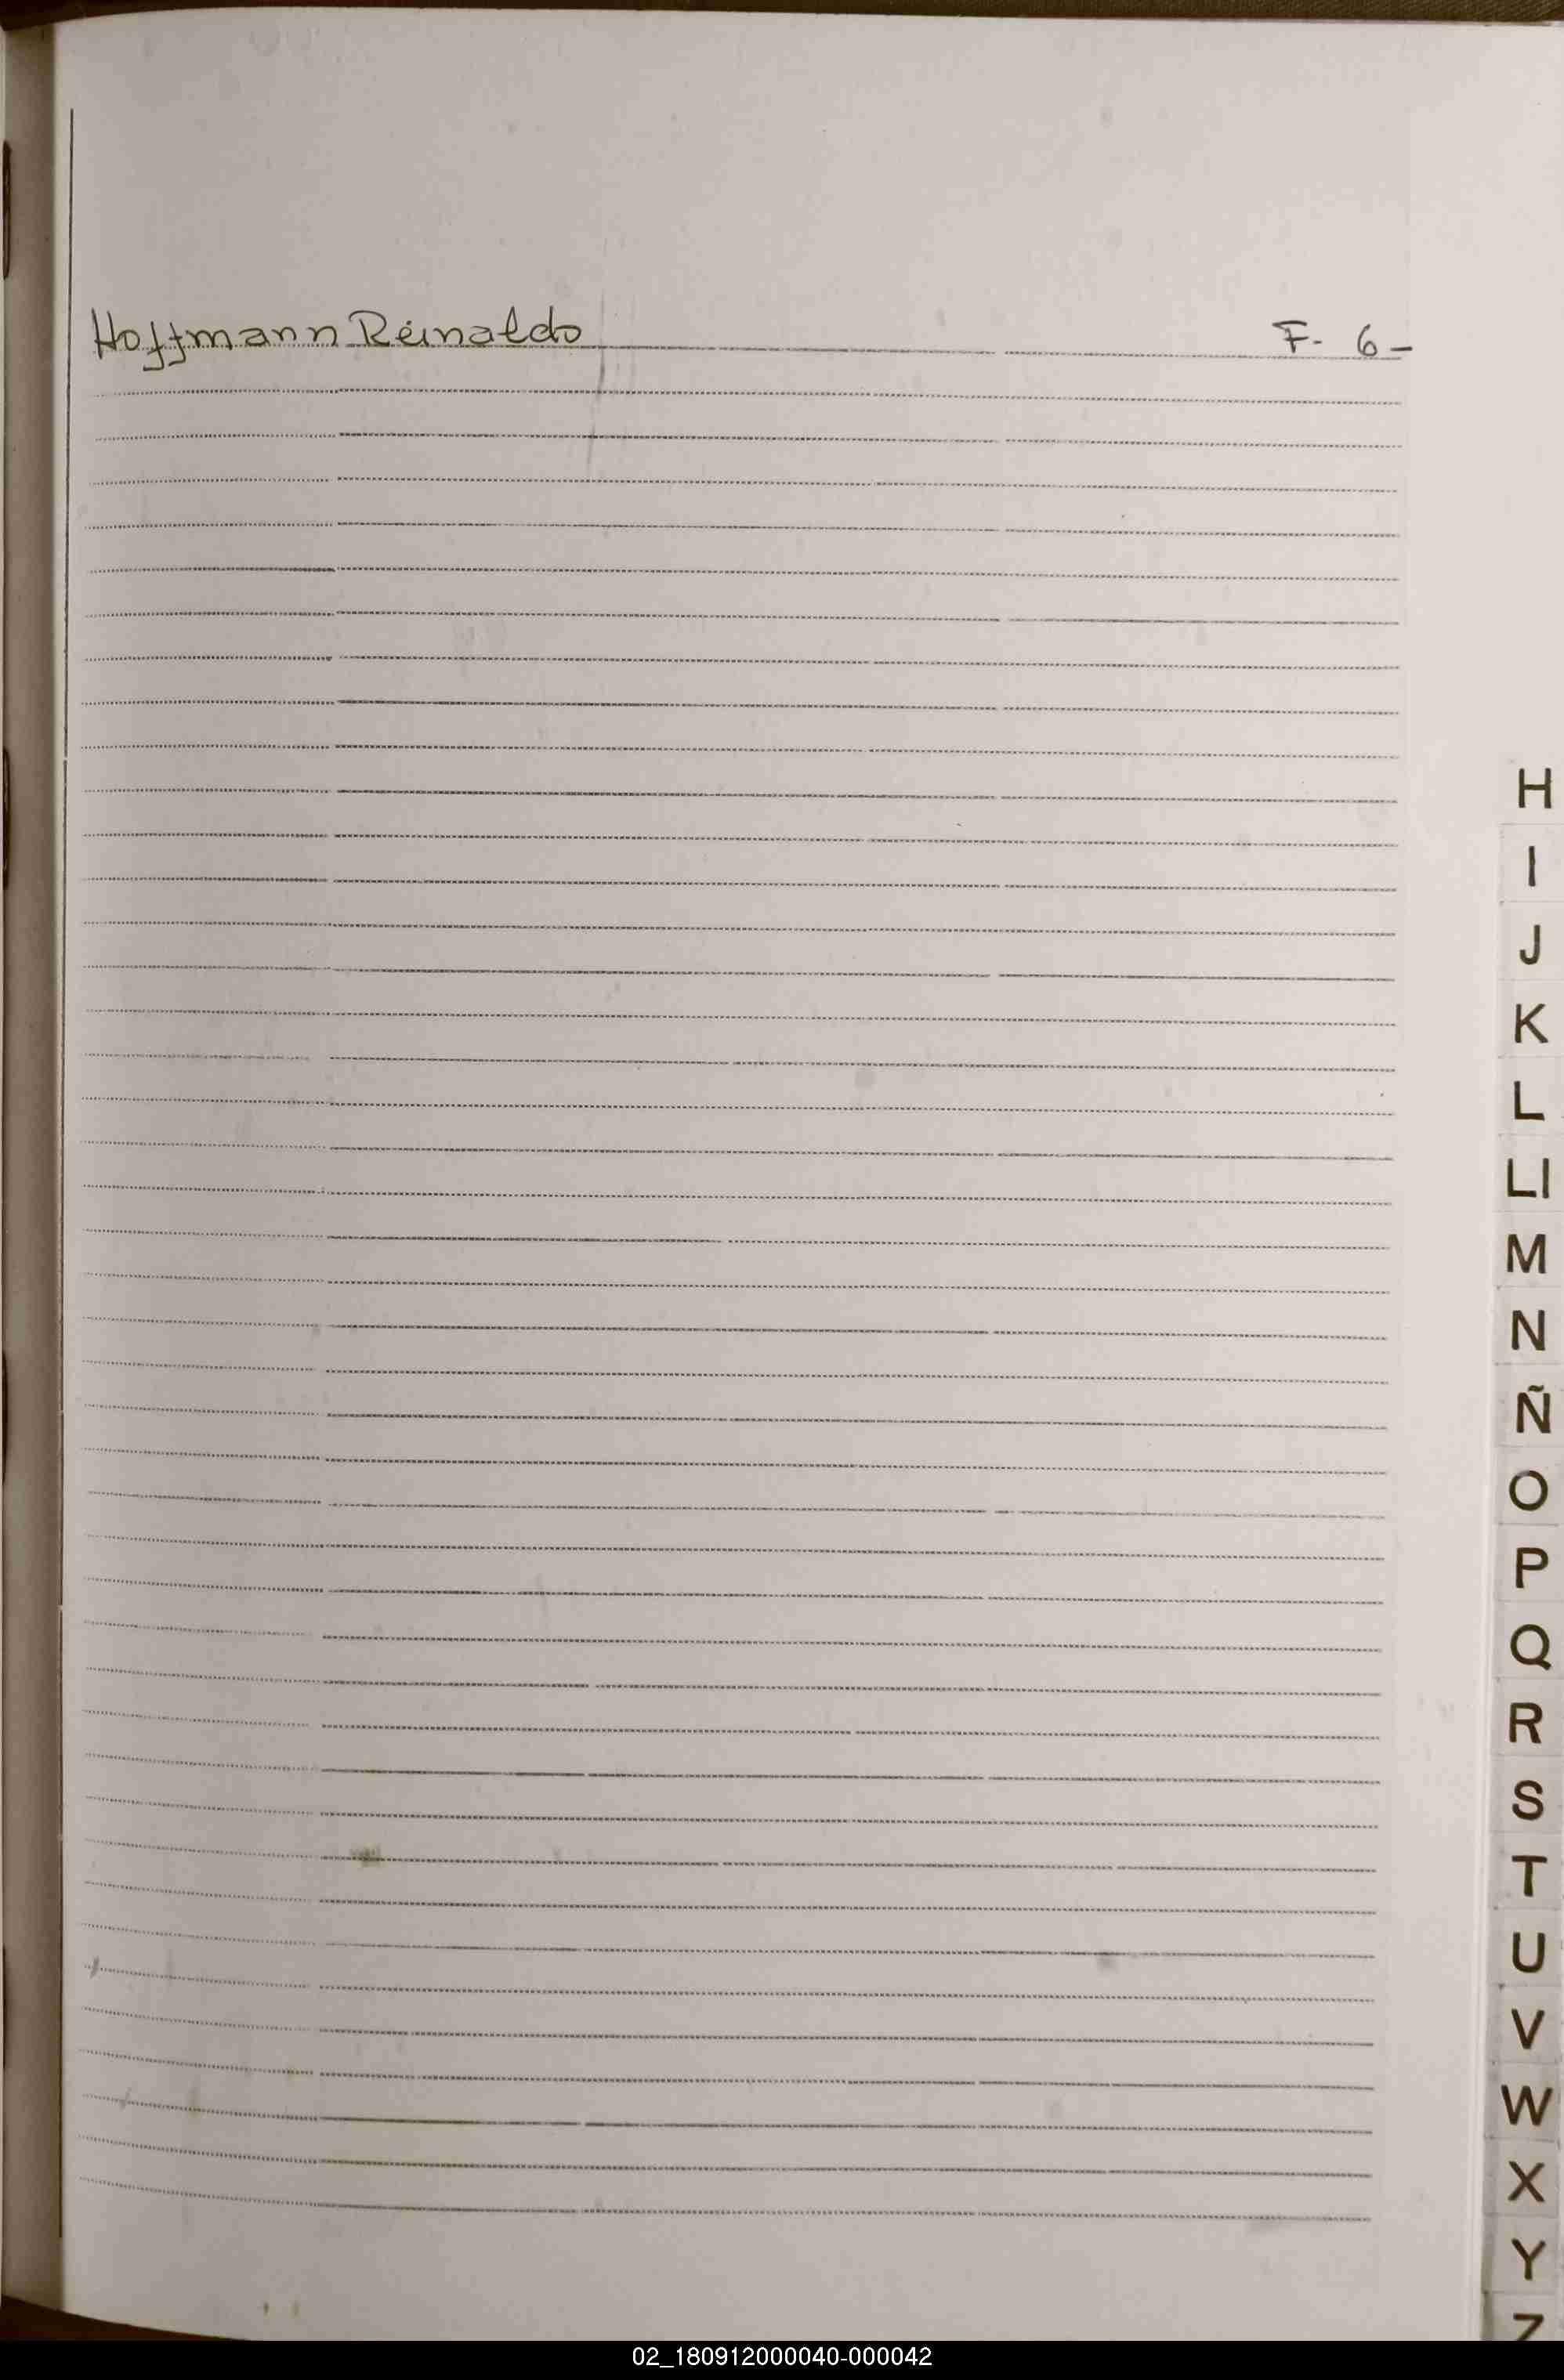 Hoffmann Reinaldo F- 6-
H
I
J
K
L
Ll
M
N
Ñ
O
P
Q
R
S
T
U
V
W
X
Y
Z
02_180912000040-000042